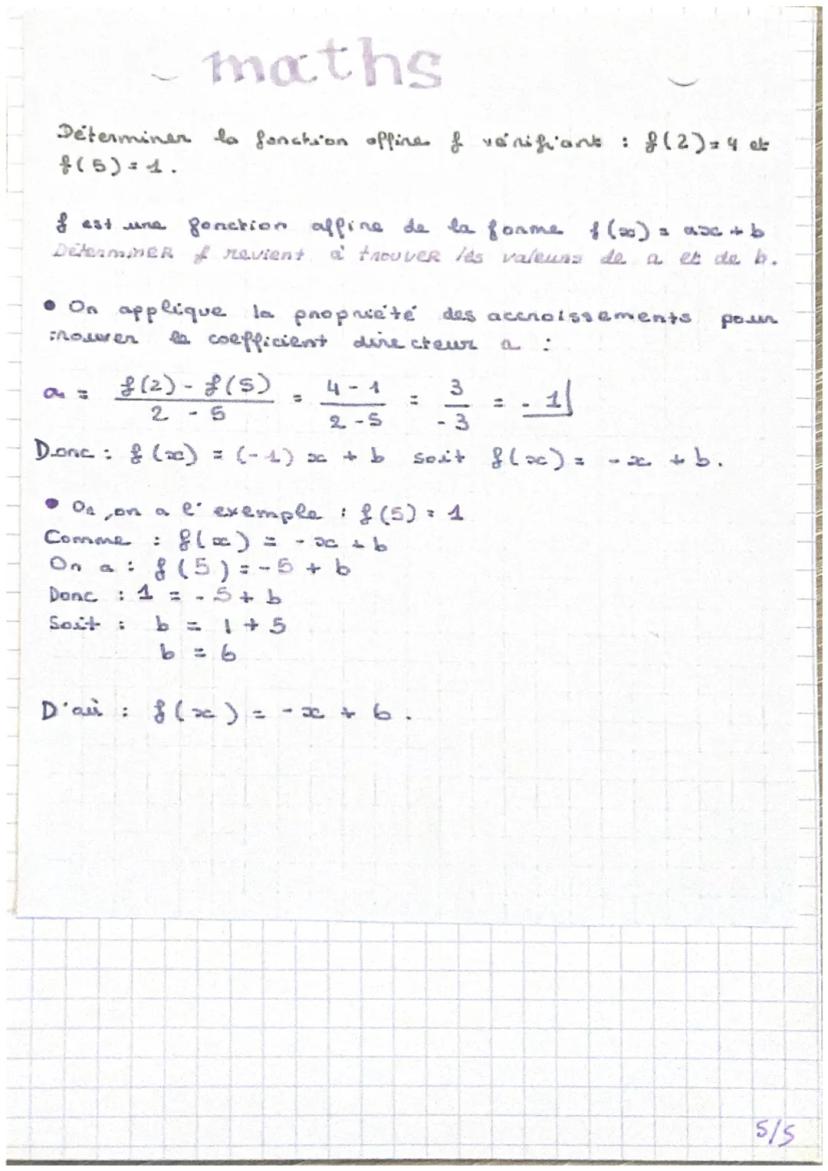 maths
Déterminer la fonction affine f vérifiant : f(2) = 4 et
f(5) = 1.
f est une fonction affine de la forme f(x) = ax + b
Déterminer f revient à trouver les valeurs de a et de b.
• On applique la propriété des accroissements pour
trouver le coefficient directeur a :
a = f(2) - f(5) / 2 - 5 = 4 - 1 / 2 - 5 = 3 / - 3 = - 1
Donc : f(x) = (-1) x + b soit f(x) = - x + b.
• Or, on a l'exemple : f(5) = 1
Comme : f(x) = - x + b
On a : f(5) = - 5 + b
Donc : 1 = - 5 + b
Soit : b = 1 + 5
b = 6
D'où : f(x) = - x + 6.
5/5